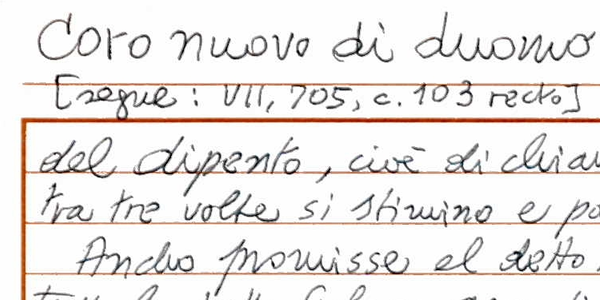 Coro nuovo di duomo
[segue: VII, 705, c. 103 recto]
del dipento, civè di chiar
tra tre volte si stimino e po
Ancho promisse el detto